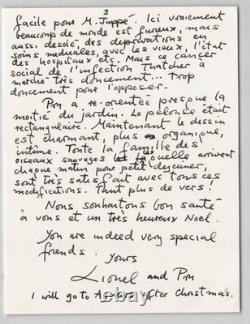 3
facile pour M. Juppé. Ici vraiment
beaucoup de monde est furieux, mais
aussi désolé, des déprivations en
soins médicales, avec les vieux, l'état
des hospitaux etc. Mais ce cancer
social de l'infection Thatcher a
marché très doucement... trop
doucement pour l'opposer.
Pm a re-orientée presque la
moitié du jardin. La pelouse était
rectangulaire. Maintenant le dessin
est charmant, plus organique,
intime. Toute la famille des
oiseaux sauvages laquelle arrivent
chaque matin pour petit dejeuner,
sont très satisfait avec tous ces
modifications. Tant plus de vers!
Nous souhaitons bon santé
à vous et un très heureux Noel.
You are indeed very special
friends. Yours
Lionel and Pm
I will go to after Christmas.